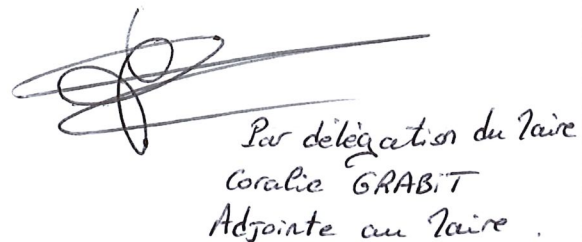 Par délégation du Maire
Coralie GRABIT
Adjointe au Maire.